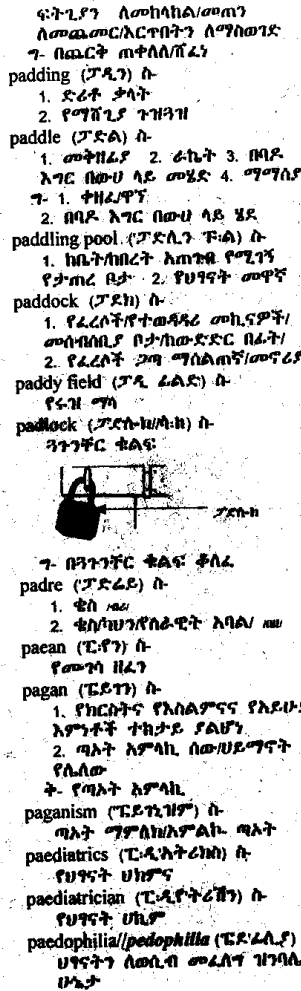 ፍትጊያን ለመከላከል/መጠን
ለመጨመር/እርጥበትን ለማስወገድ
ግ- በጨርቅ ጠቀለለ/ሸፈነ
padding (ፓዲን) ስ-
1. ድሪቶ ቃላት
2. የማሸጊያ ጉዝጓዝ
paddle (ፓድል) ስ-
1. መቅዘፊያ 2. ራኬት 3. በባዶ
እግር በውሀ ላይ መሄድ 4. ማማሰያ
ግ- 1. ቀዘፈ/ዋኘ
2. በባዶ እግር በውሀ ላይ ሄደ
paddling pool (ፓድሊን ፑል) ስ-
1. ከቤት/ከበረት አጠገብ የሚገኝ
የታጠረ ቦታ 2. የህፃናት መዋኛ
paddock (ፓደክ) ስ-
1. የፈረሶች/የተወዳዳሪ መኪናዎች/
መሰብሰቢያ ቦታ/ከውድድር በፊት/
2. የፈረሶች ጋጣ ማሰልጠኛ/መኖሪያ
paddy field (ፓዲ ፊልድ) ስ-
የሩዝ ማሳ
padlock (ፓድሎክ) ስ-
ጓጉንቸር ቁልፍ
ፓድሎክ
ግ- በጓጉንቸር ቁልፍ ቆለፈ
padre (ፓድሬይ) ስ-
1. ቄስ
2. ቄስ/ካህን/የሰራዊት አባል/
paean (ፒየን) ስ-
የሙገሳ ዘፈን
pagan (ፔይገን) ስ-
1. የክርስትና የእስልምናና የአይሁድ
እምነቶች ተከታይ ያልሆነ
2. ጣኦት አምላኪ ሰው/ሀይማኖት
የሌለው
ቅ- የጣኦት አምላኪ
paganism (ፔይገኒዝም) ስ-
ጣኦት ማምለክ/አምልኮ ጣኦት
paediatrics (ፒዲአትሪክስ) ስ-
የህፃናት ህክምና
paediatrician (ፒዲየትሪሽን) ስ-
የህፃናት ሀኪም
paedophilia//pedophilia (ፔደፊሊያ)
ህፃናትን ለወሲብ መፈለግ ዝንባሌ
ሁኔታ